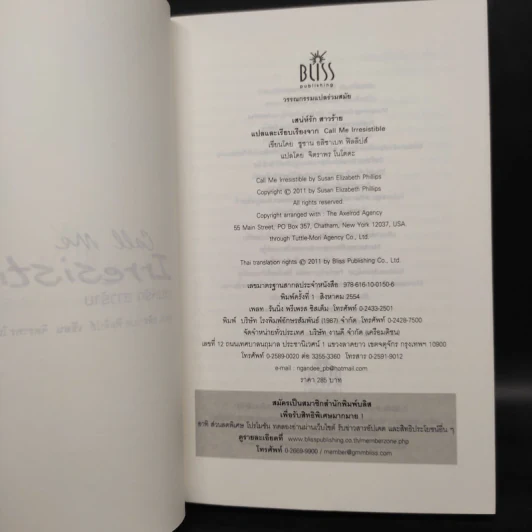 BLISS
publishing
วรรณกรรมแปลร่วมสมัย
เสน่ห์รัก สาวร้าย
แปลและเรียบเรียงจาก Call Me Irresistible
เขียนโดย ซูซาน อลิซาเบท ฟิลลิปส์
แปลโดย จิตราพร โนโตดะ
Call Me Irresistible by Susan Elizabeth Phillips
Copyright © 2011 by Susan Elizabeth Phillips
All rights reserved.
Copyright arranged with : The Axelrod Agency
55 Main Street, PO Box 357, Chatham, New York 12037, USA.
through Tuttle-Mori Agency Co., Ltd.
Thai translation rights © 2011 by Bliss Publishing Co., Ltd.
เลขมาตรฐานสากลประจำหนังสือ: 978-616-10-0150-6
พิมพ์ครั้งที่ 1 สิงหาคม 2554
เพลท : รันนิ่ง พรีเพรส ซิสเต็ม โทรศัพท์ 0-2433-2501
พิมพ์ บริษัท โรงพิมพ์อักษรสัมพันธ์ (1987) จำกัด โทรศัพท์ 0-2428-7500
จัดจำหน่ายทั่วประเทศ บริษัท งานดี จำกัด (เครือมติชน)
เลขที่ 12 ถนนเทศบาลนฤมาล ประชานิเวศน์ 1 แขวงลาดยาว เขตจตุจักร กรุงเทพฯ 10900
โทรศัพท์ 0-2589-0020 ต่อ 3355-3360 โทรสาร 0-2591-9012
e-mail : ngandee_pb@hotmail.com
ราคา 285 บาท
สมัครเป็นสมาชิกสำนักพิมพ์บลิส
เพื่อรับสิทธิพิเศษมากมาย !
อาทิ ส่วนลดพิเศษ โปรโมชั่น ทดลองอ่านผ่านเว็บไซต์ รับข่าวสารอัปเดต และสิทธิประโยชน์อื่น ๆ
ดูรายละเอียดที่ www.blisspublishing.co.th/memberzone.php
โทรศัพท์ 0-2669-9900 / member@gmmbliss.com
Call Me
Irresisti